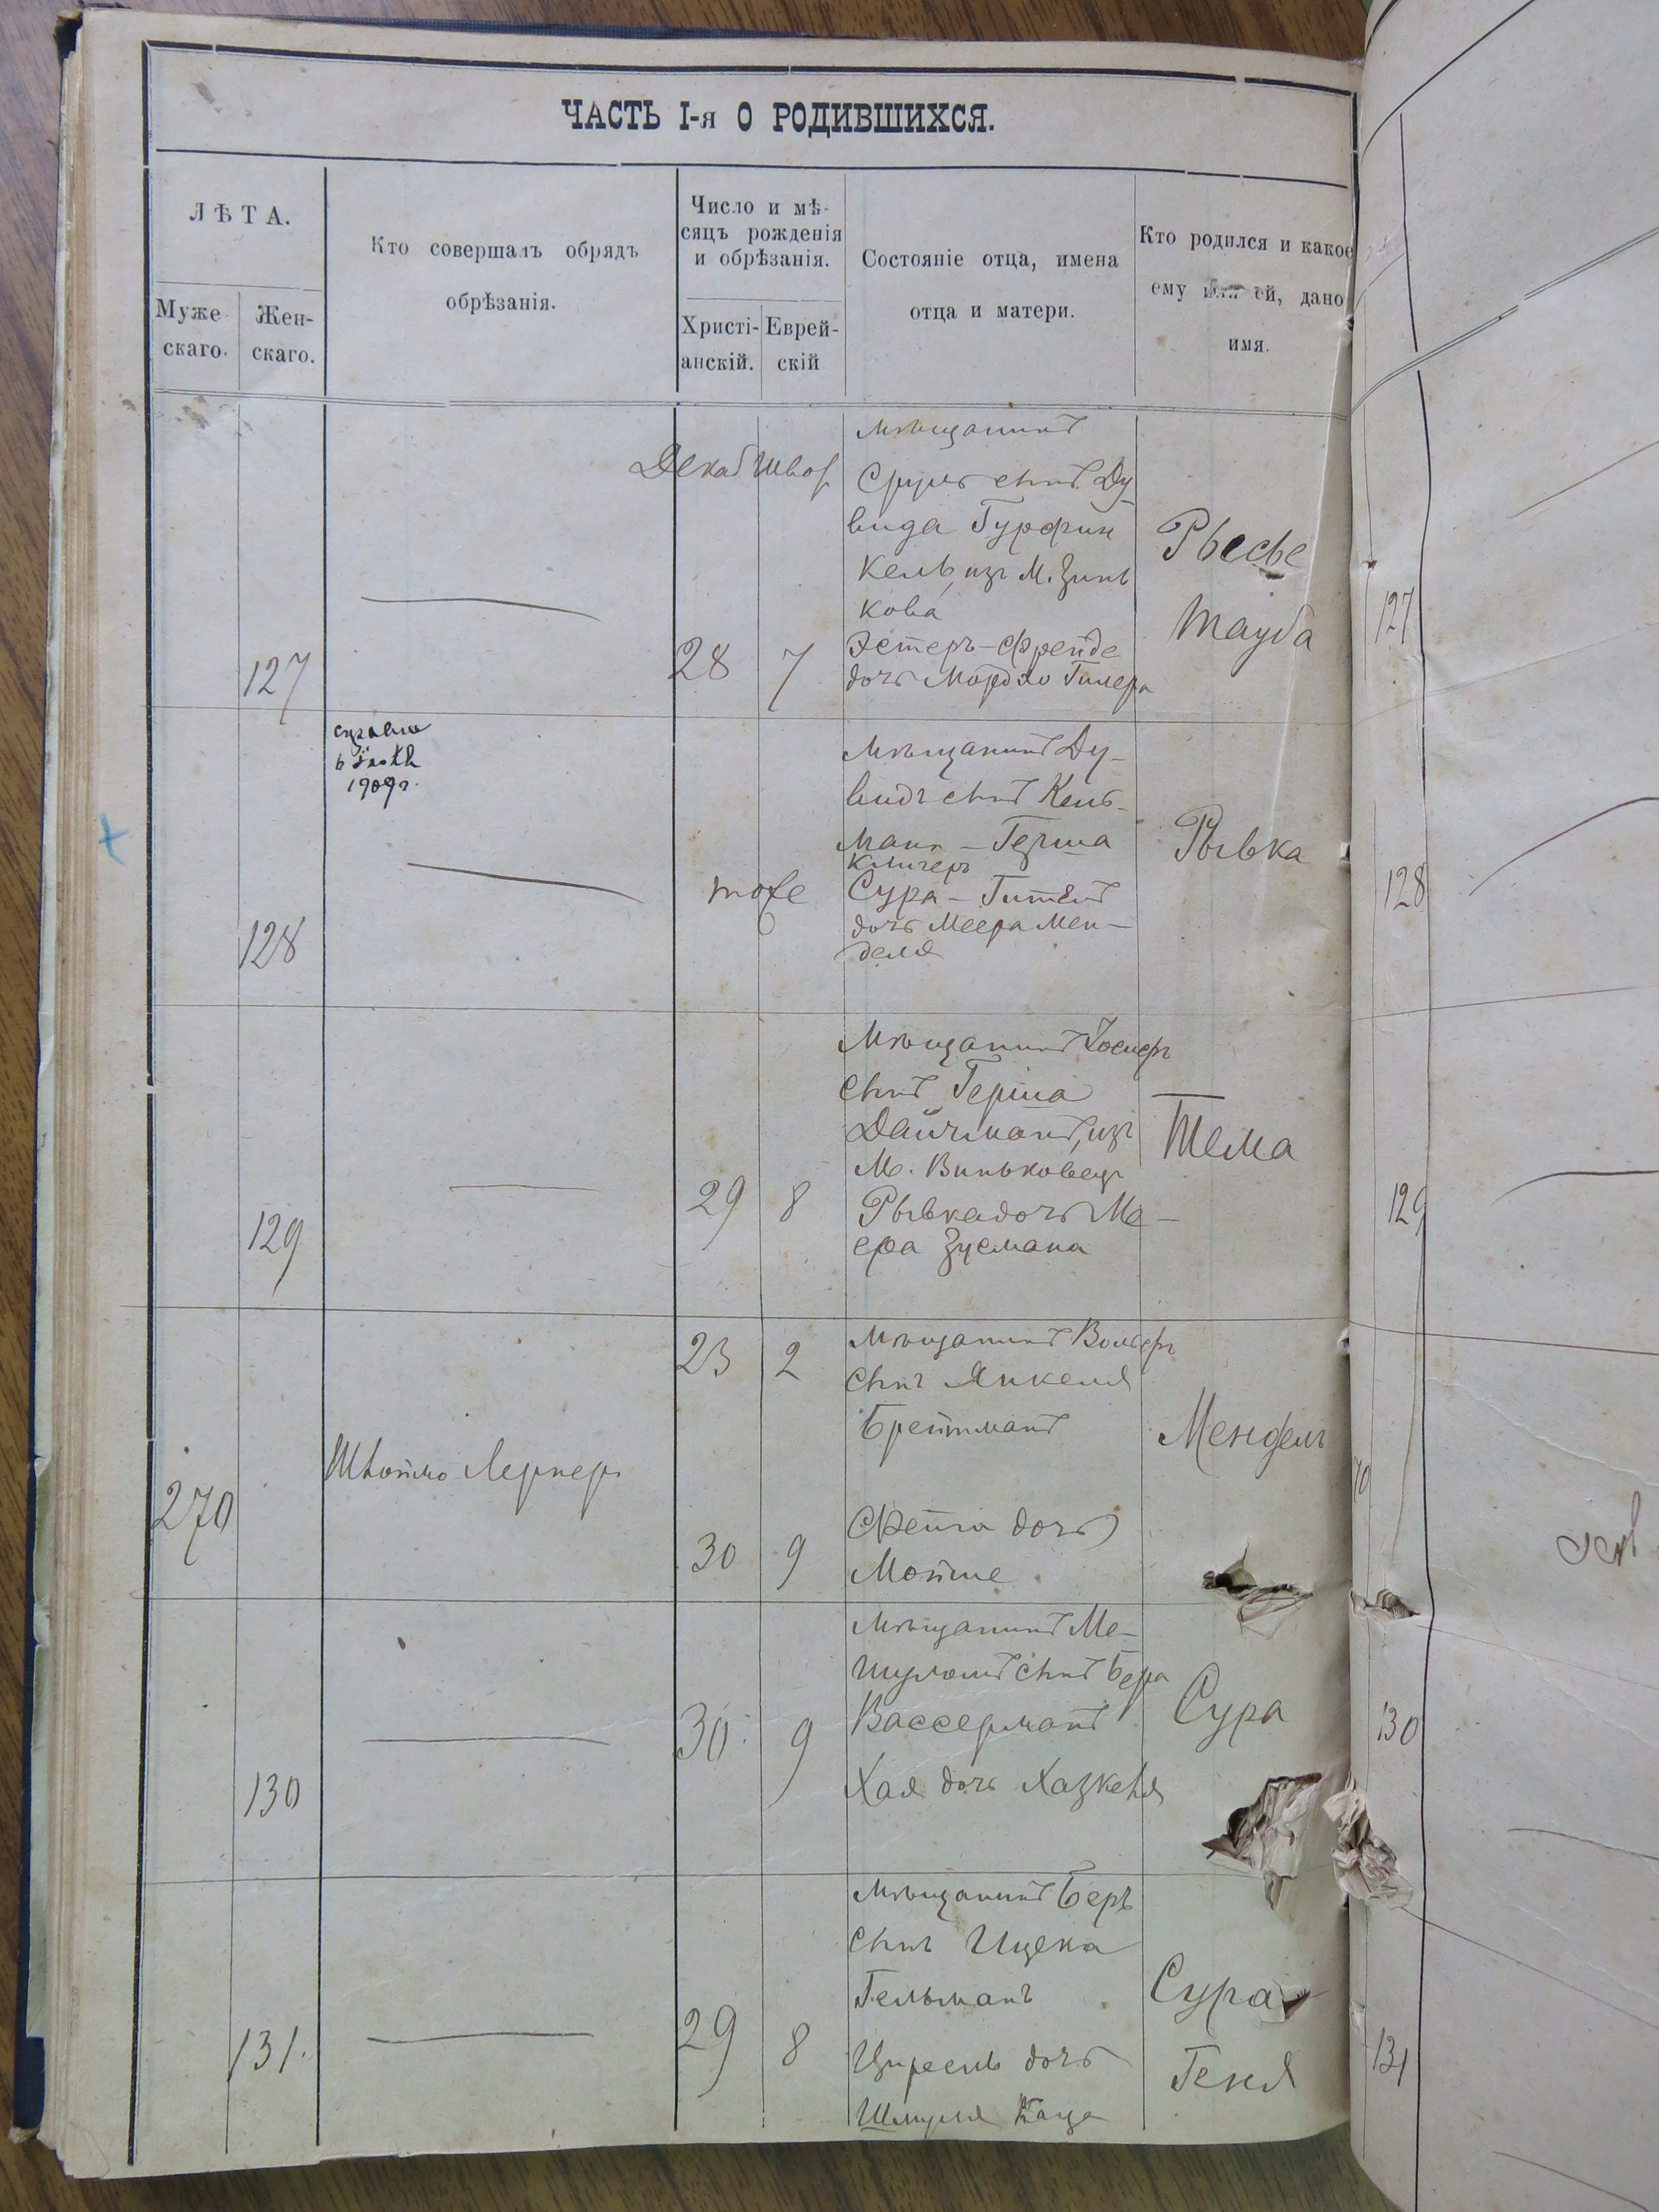 ЧАСТЬ I-я О РОДИВШИХСЯ.
ЛѢТА.
Муже
скаго.
Жен-
скаго.
Кто совершалъ обрядъ
обрѣзанія.
Число и мѣ-
сяцъ рожденія
и обрѣзанія.
Христі-
анскій.
Еврей-
скій
Состояніе отца, имена
отца и матери.
Кто родился и какое
ему или ей, дано
имя.
127
Декаб
28
7
мѣщанинъ
Сруль сынъ Ду
вида Гурфин
кель, изъ М. Зинь
кова
Эстеръ-Фрейде
дочь Мордко
Тауба
127
128
1909г.
тоже
Мѣщанинъ Ду-
видъ сынъ Кель-
мана - Герша
Сура -
дочь Меера Мен-
деля
Рывка
128
129
29
8
Мѣщанинъ
сынъ Герша
Дайчманъ, изъ
М. Виньковецъ
Рывка дочь Ме-
ера Зусмана
Тема
129
270
Лернеръ
23
2
30
9
Мѣщанинъ
сынъ Янкеля
Брейтманъ
Фейга дочь
Мошше
Мендель
70
130
30
9
Мѣщанинъ Ме-
шуломъ сынъ Бера
Вассерманъ
Хая дочь Хазкеля
Сура
130
131.
29
8
Мѣщанинъ Беръ
сынъ Ицека
Гельманъ
дочь
Шмуля Каца
Сура
Геня
131